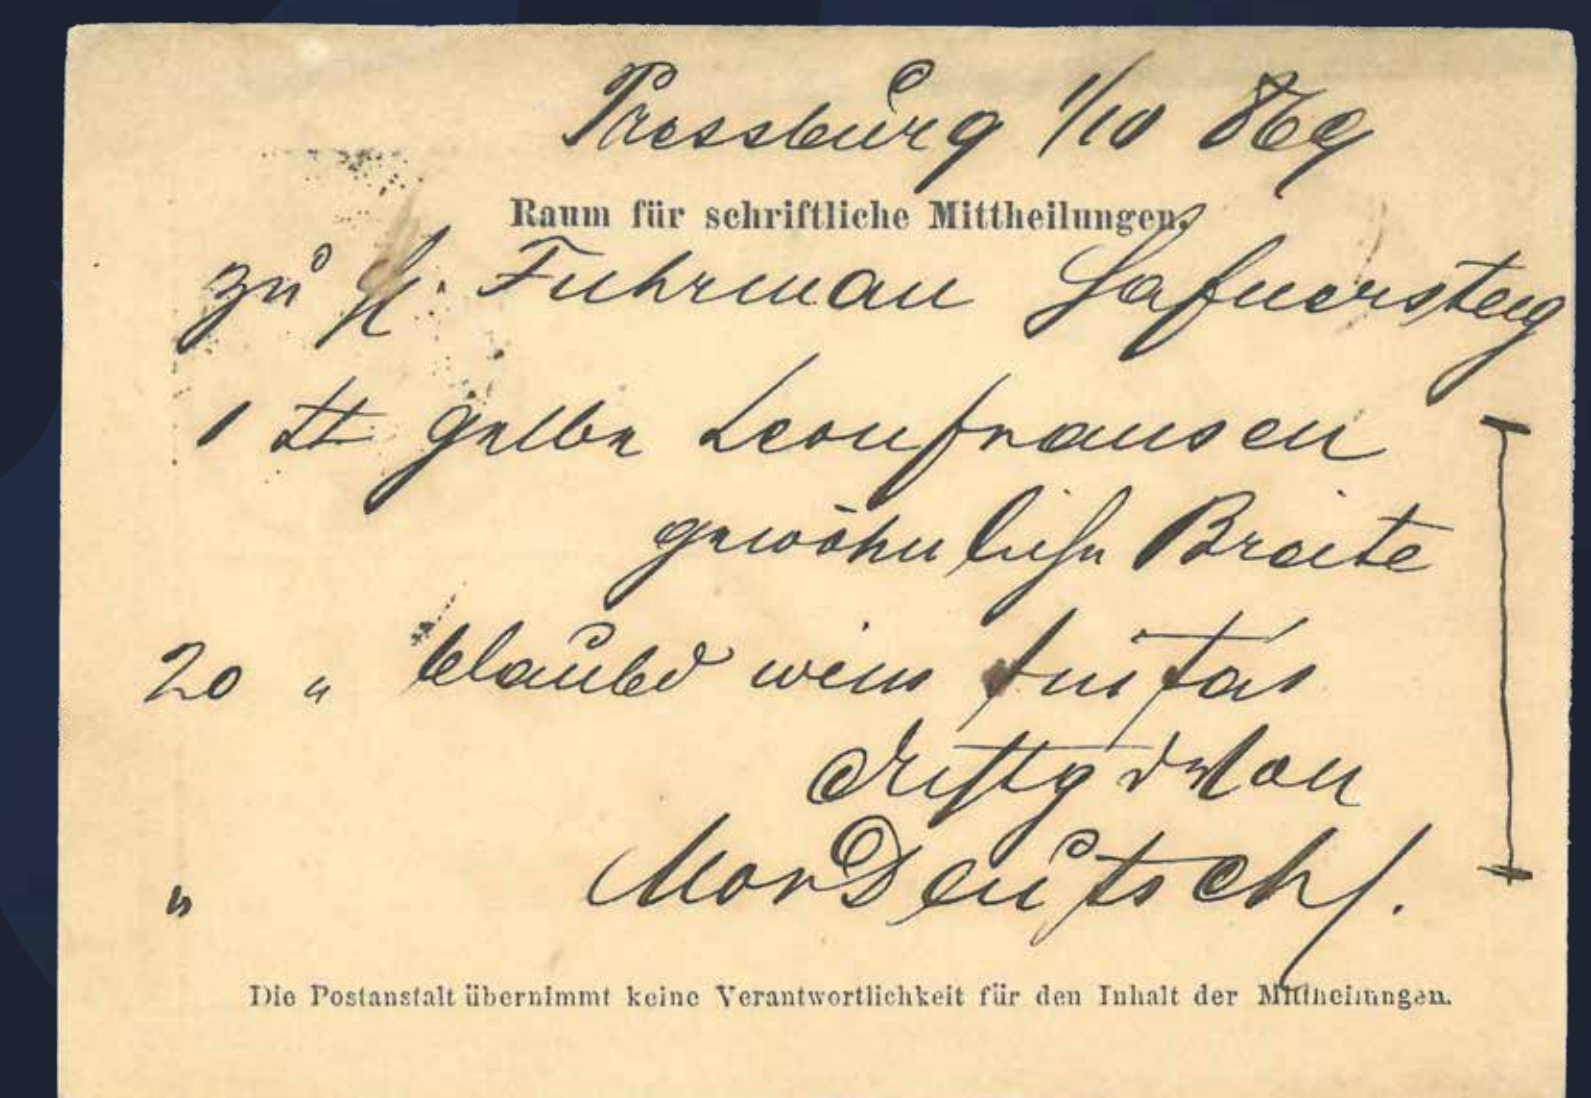 Pressburg 1/10 869
Raum für schriftliche Mittheilungen.
zu H. Fuhrman Hafnersteig
1 ℔ gelbe Leonfransen
gewöhnliche Breite
20 „ blaube
„ Mor Deutsch
Die Postanstalt übernimmt keine Verantwortlichkeit für den Inhalt der Mittheilungen.